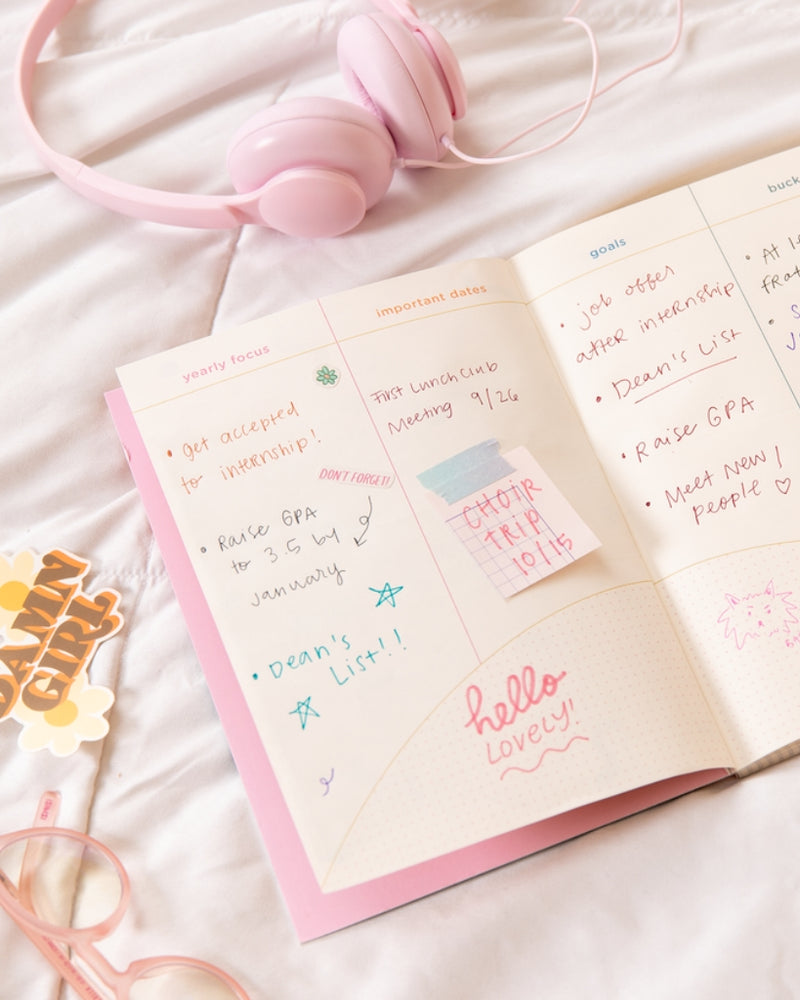 yearly focus
get accepted
to internship!
DON'T FORGET!
Raise GPA
to 3.5 by
january
Dean's
List!!
important dates
First Lunch Club
Meeting 9/26
CHOIR
TRIP
10/15
hello
LOVELY!
goals
job offer
after internship
Dean's List
Raise GPA
Meet New
people ♡
At
DAMN
GIRL